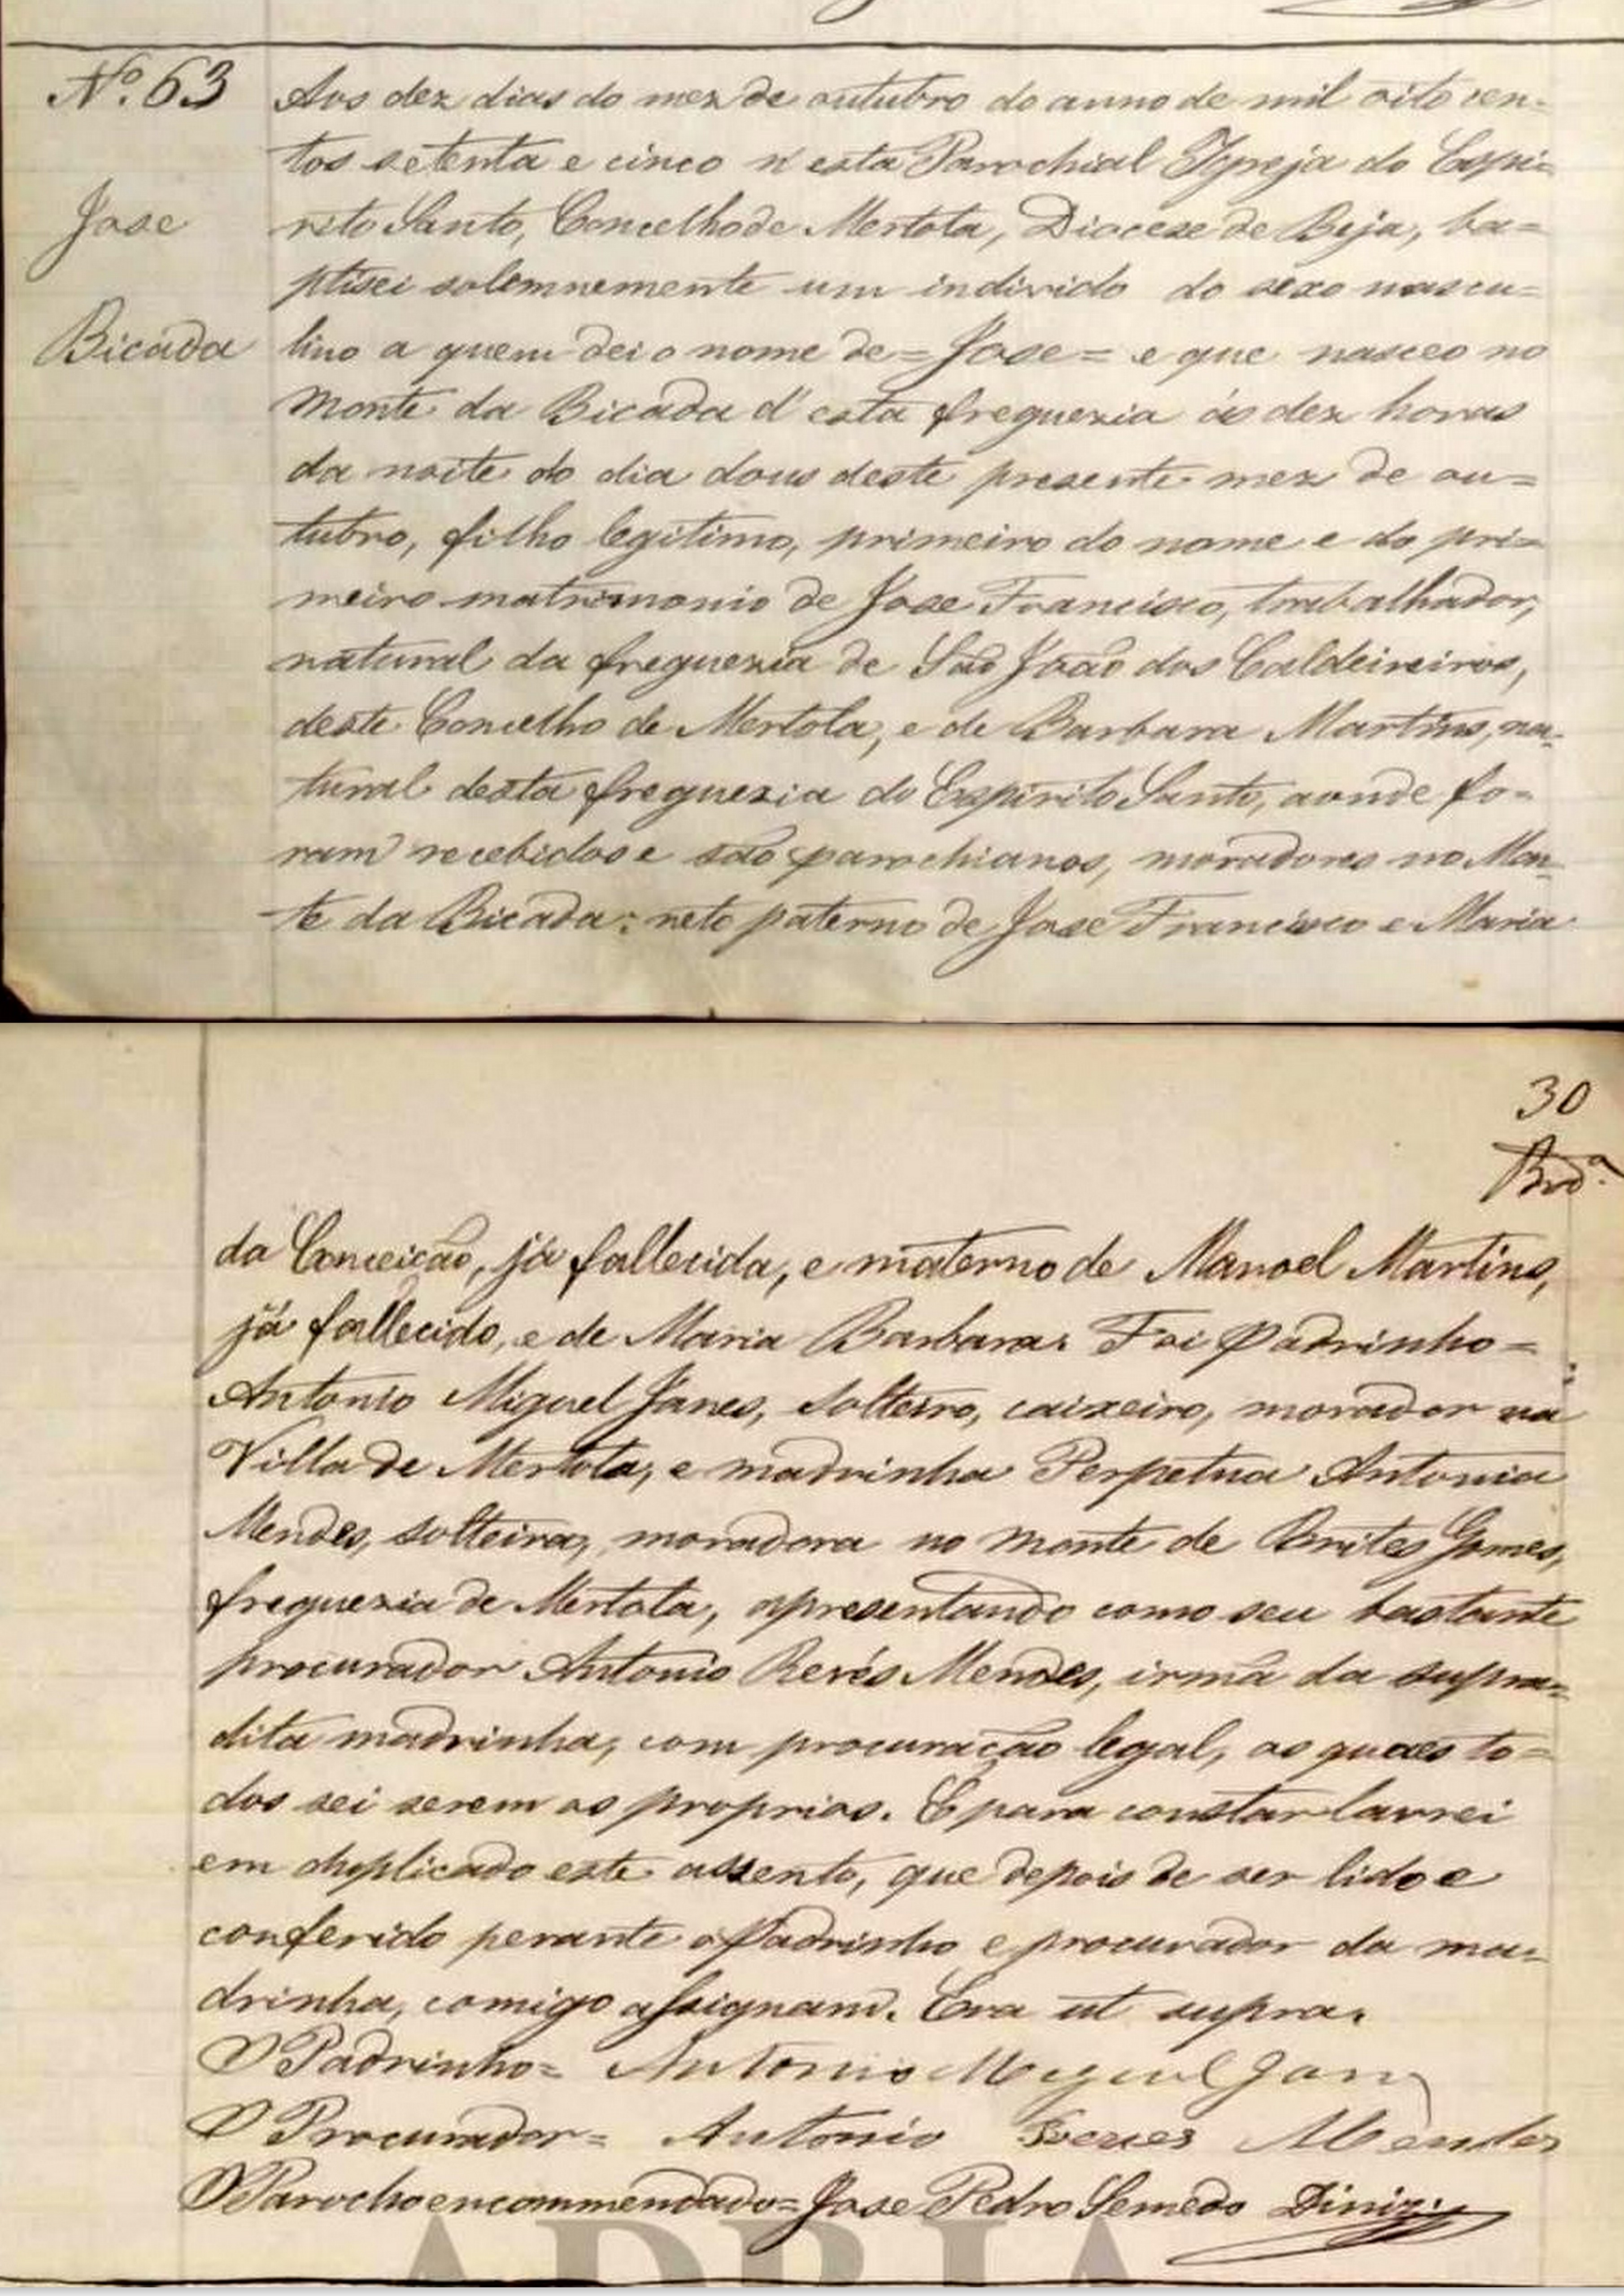 Nº 63
Jose
Bicada
Aos dez dias do mez de outubro do anno de mil oito cen-
tos setenta e cinco n'esta Parochial Igreja do Espi-
rito Santo, Concelho de Mertola, Diocese de Beja, ba=
ptisei solemnemente um individo do sexo mascu=
lino a quem dei o nome de = Jose = e que nasceo no
Monte da Bicada d'esta freguezia ás dez horas
da noite do dia dous deste presente mez de ou=
tubro, filho legitimo, primeiro do nome e do pri=
meiro matrimonio de Jose Francisco, trabalhador,
natural da freguezia de São João dos Caldeireiros,
deste Concelho de Mertola, e de Barbara Martins, na-
tural desta freguezia do Espirito Santo, aonde fo=
ram recebidos e são parochianos, moradores no Mon-
te da Bicada: neto paterno de Jose Francisco e Maria
30
da Conceição, já fallecida, e materno de Manoel Martins,
já fallecido, e de Maria Barbara. Foi Padrinho =
Antonio Miguel Janes, solteiro, caixeiro, morador na
Villa de Mertola, e madrinha Perpetua Antonia
Mendes, solteira, moradora no Monte de Brites Gomes,
freguezia de Mertola, apresentando como seu bastante
procurador Antonio Revés Mendes, irmã da supra=
dita madrinha, com procuração legal, os quaes to=
dos sei serem os proprios. E para constar lavrei
em duplicado este assento, que depois de ser lido e
conferido perante o Padrinho e procurador da ma=
drinha, comigo assignam. Era ut supra.
O Padrinho = Antonio Miguel Janes
O Procurador = Antonio Reves Mendes
O Parocho encommendado = Jose Pedro Semedo Diniz
ADBJA